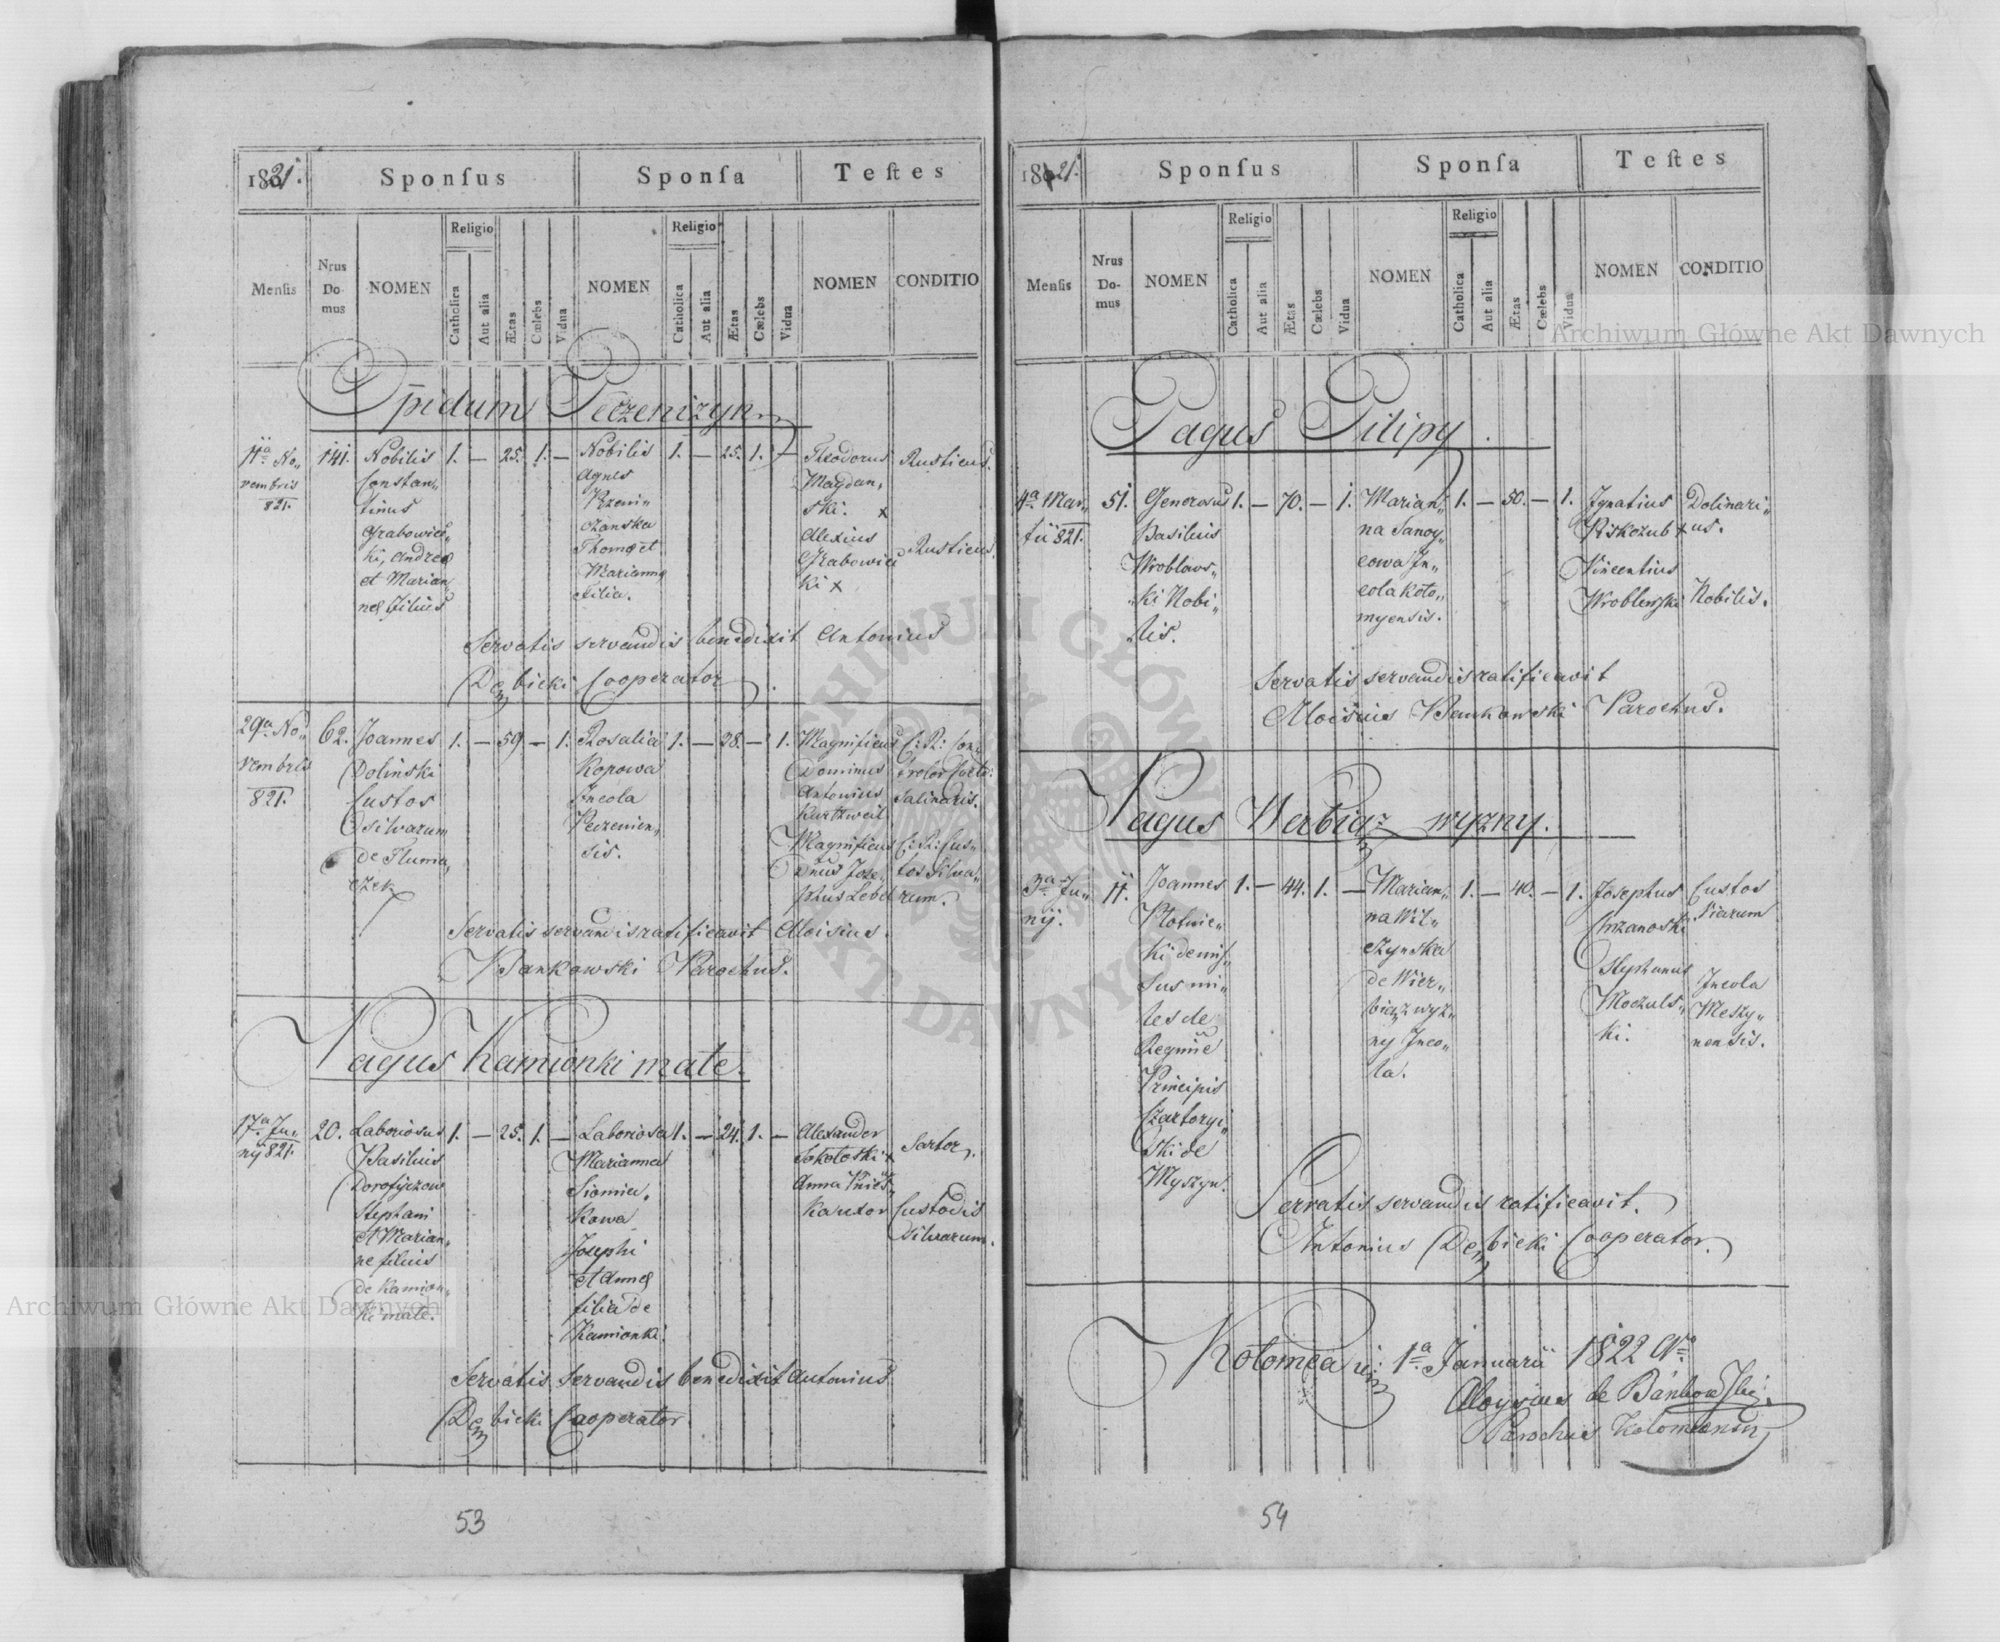 1821.
Sponſus
Sponſa
Teſtes
Menſis
Nrus Do-mus
NOMEN
Religio
Catholica
Aut alia
Ætas
Cœlebs
Vidua
NOMEN
Religio
Catholica
Aut alia
Ætas
Cœlebs
Vidua
NOMEN
CONDITIO
Opidum Peczeniżyn
11a No„
vembris
821.
141.
Nobilis
Constan„
tinus
Grabowiec„
ki, Andreæ
et Marian„
næ Filius
1. — 25. 1. —
Nobilis
Agnes
Thomæ et
Mariannæ
Filia.
1. — 25. 1. —
Theodorus
Magdan„
ski. x
Alexius
Grabowiec
ki x
Rusticus.
Rusticus.
Servatis servandis benedixit Antonius
Dembicki Cooperator.
29a No„
vembris
821.
62.
Joannes
Dolinski
Custos
silvarum
de Tluma„
czek
1. — 59. — 1.
Rosalia
Kopowa
Incola
Peczenien„
sis.
1. — 38. — 1.
Magnificus
Dominus
Antonius
Kurtzweil
Magnificus
Dnus Jose„
phus Lebel
C: R: Con„
trolor Cocto:
Salinaris.
C: R: Cus„
tos Silva„
rum.
Servatis servandis ratificavit Aloisius
Bankowski Parochus.
Pagus Kamionki małe.
17a Ju„
nÿ 821.
20.
Laboriosus
Basilius
Stephani
et Marian„
næ filius
de Kamion„
ki małe.
1. — 25. 1. —
Laboriosa
Marianna
Siomia„
kowa
Josephi
et Annæ
filia de
Kamionki.
1. — 24. 1. —
Alexander
Sokołoski x
Anna
Sartor.
Custodis
silvarum.
Servatis servandis benedixit Antonius
Dembicki Cooperator.
53
1821.
Sponſus
Sponſa
Teſtes
Menſis
Nrus Do-mus
NOMEN
Religio
Catholica
Aut alia
Ætas
Cœlebs
Vidua
NOMEN
Religio
Catholica
Aut alia
Ætas
Cœlebs
Vidua
NOMEN
CONDITIO
Pagus Pilipy.
4a Mar„
tii 821.
51.
Generosus
Basilius
Wroblaws„
ki Nobi„
lis.
1. — 70. — 1.
Marian„
na Sanoy„
cowa In„
cola Koło„
myensis.
1. — 50. — 1.
Ignatius
Piskozub x
Vincentius
Wroblewski
Dolinari„
us.
Nobilis.
Servatis servandis ratificavit
Aloisius Bankowski Parochus.
Pagus Werbiąz wyzny.
3a Ju„
nÿ.
11.
Joannes
Płotnic„
ki demis„
sus mi„
les de
Regmie
Principis
Czartoryi„
ski de
Myszyn.
1. — 44. 1. —
Marian„
na Wil„
czynska
de Wier„
biąz wyż„
ny Inco„
la.
1. — 40. — 1.
Josephus
Chrzanoski
Stephanus
Moczuls„
ki.
Custos
Viarum
Incola
Meszy„
nensis.
Servatis servandis ratificavit.
Antonius Dembicki Cooperator.
Kołomea 1a Januarii 1822 Ao
Aloysius de Bankowski
Parochus Kolomeensis
54
Archiwum Główne Akt Dawnych
Archiwum Główne Akt Dawnych
ARCHIWUM GŁÓWNE AKT DAWNYCH